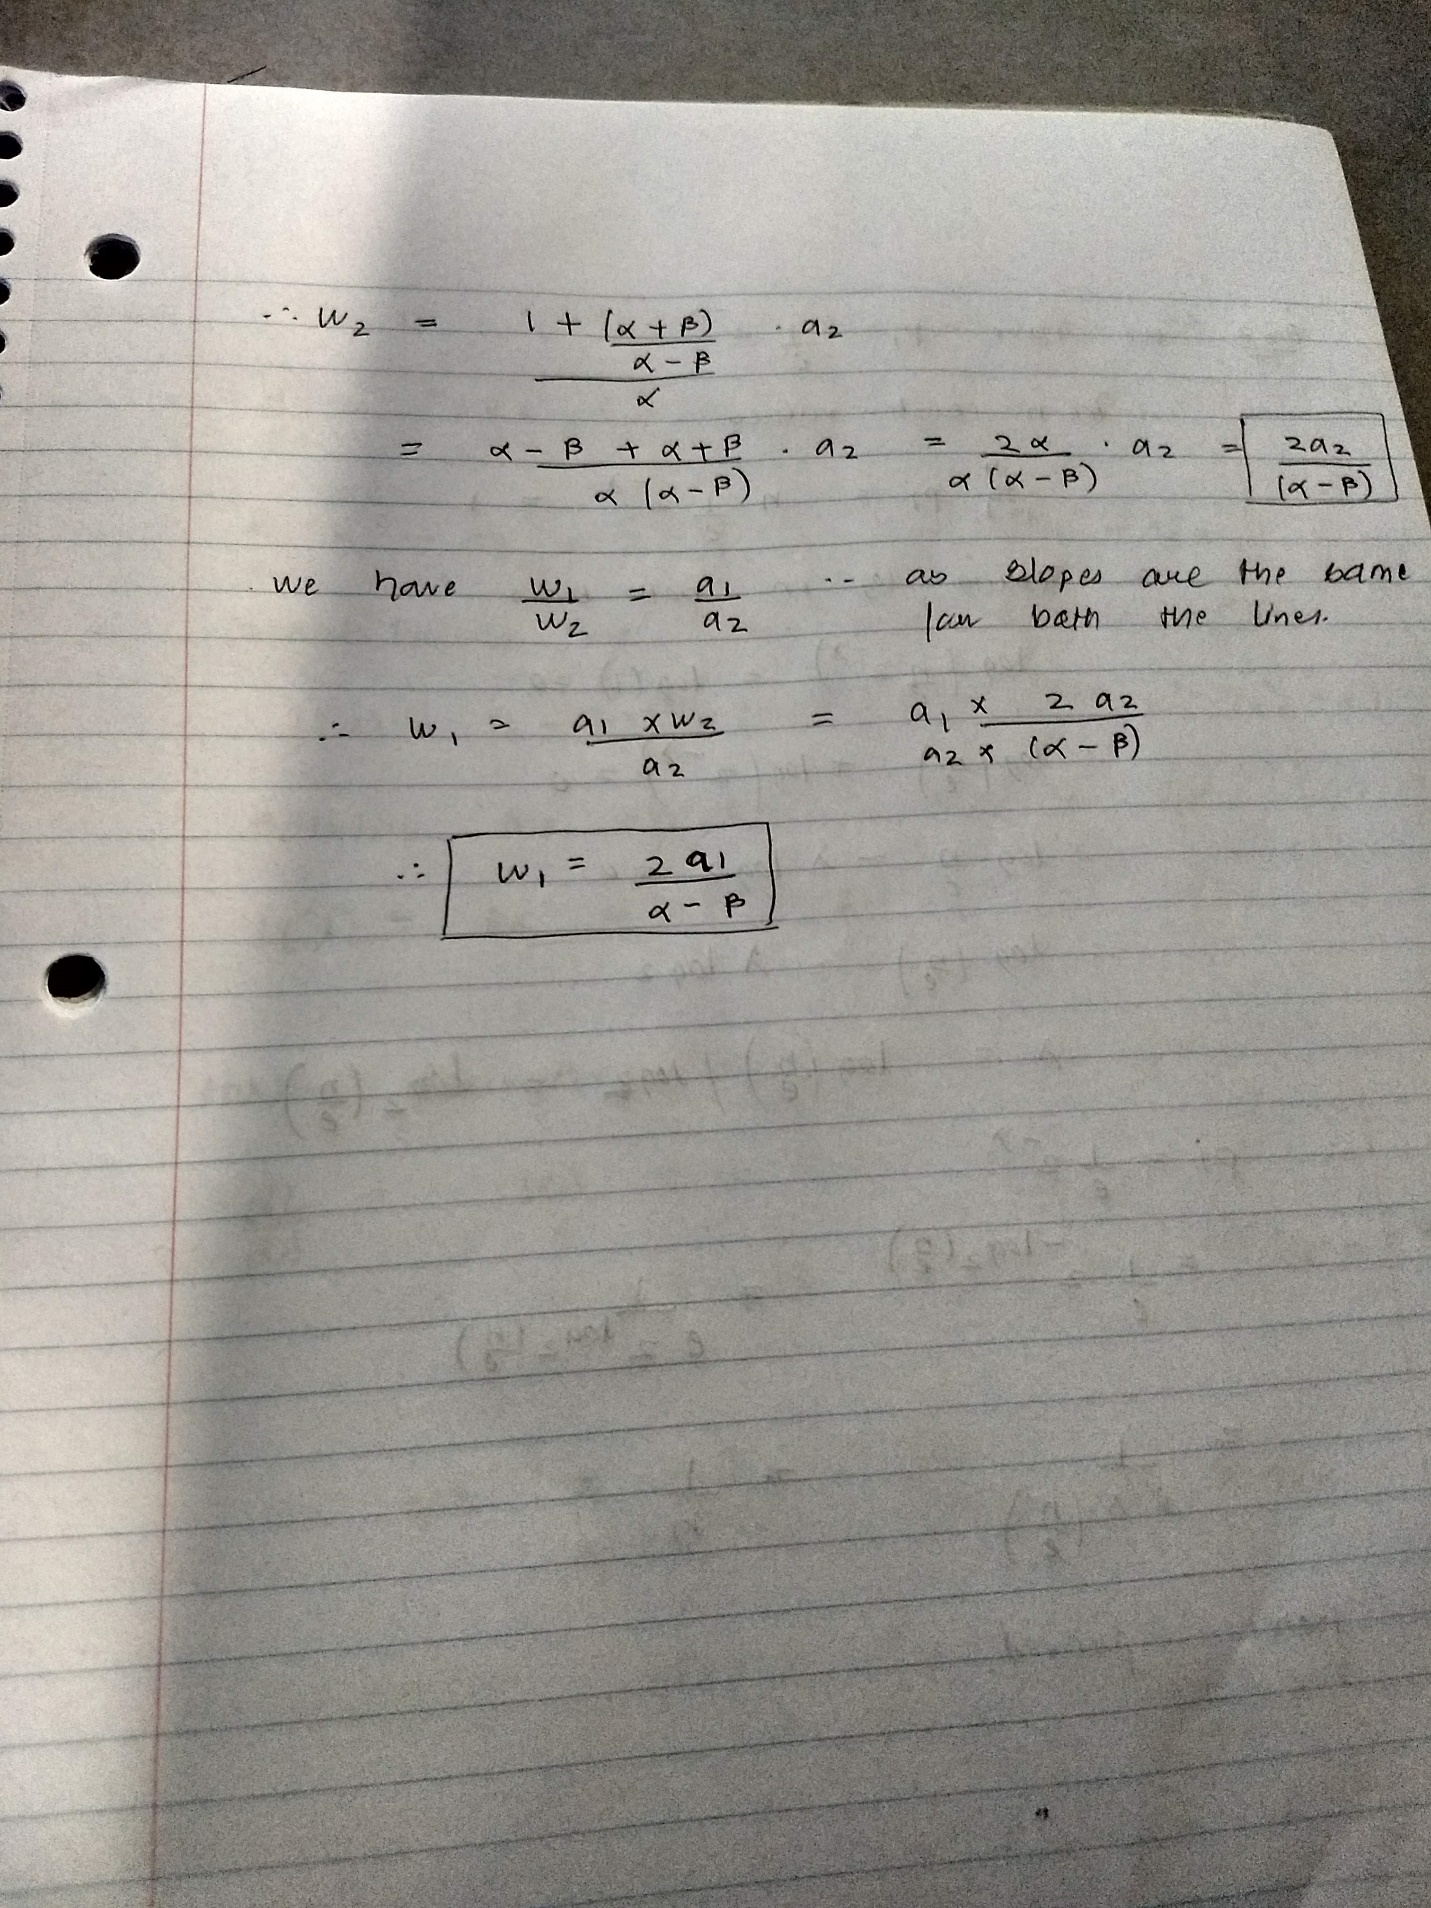 ∴ w₂ = (1 + (α + β)/(α - β))/α · a₂
= (α - β + α + β)/(α (α - β)) · a₂ = 2α/(α (α - β)) · a₂ = 2a₂/(α - β)
we have w₁/w₂ = a₁/a₂ ... as slopes are the same
for both the lines.
∴ w₁ = (a₁ × w₂)/a₂ = (a₁ × 2 a₂)/(a₂ × (α - β))
∴ w₁ = 2 a₁/(α - β)